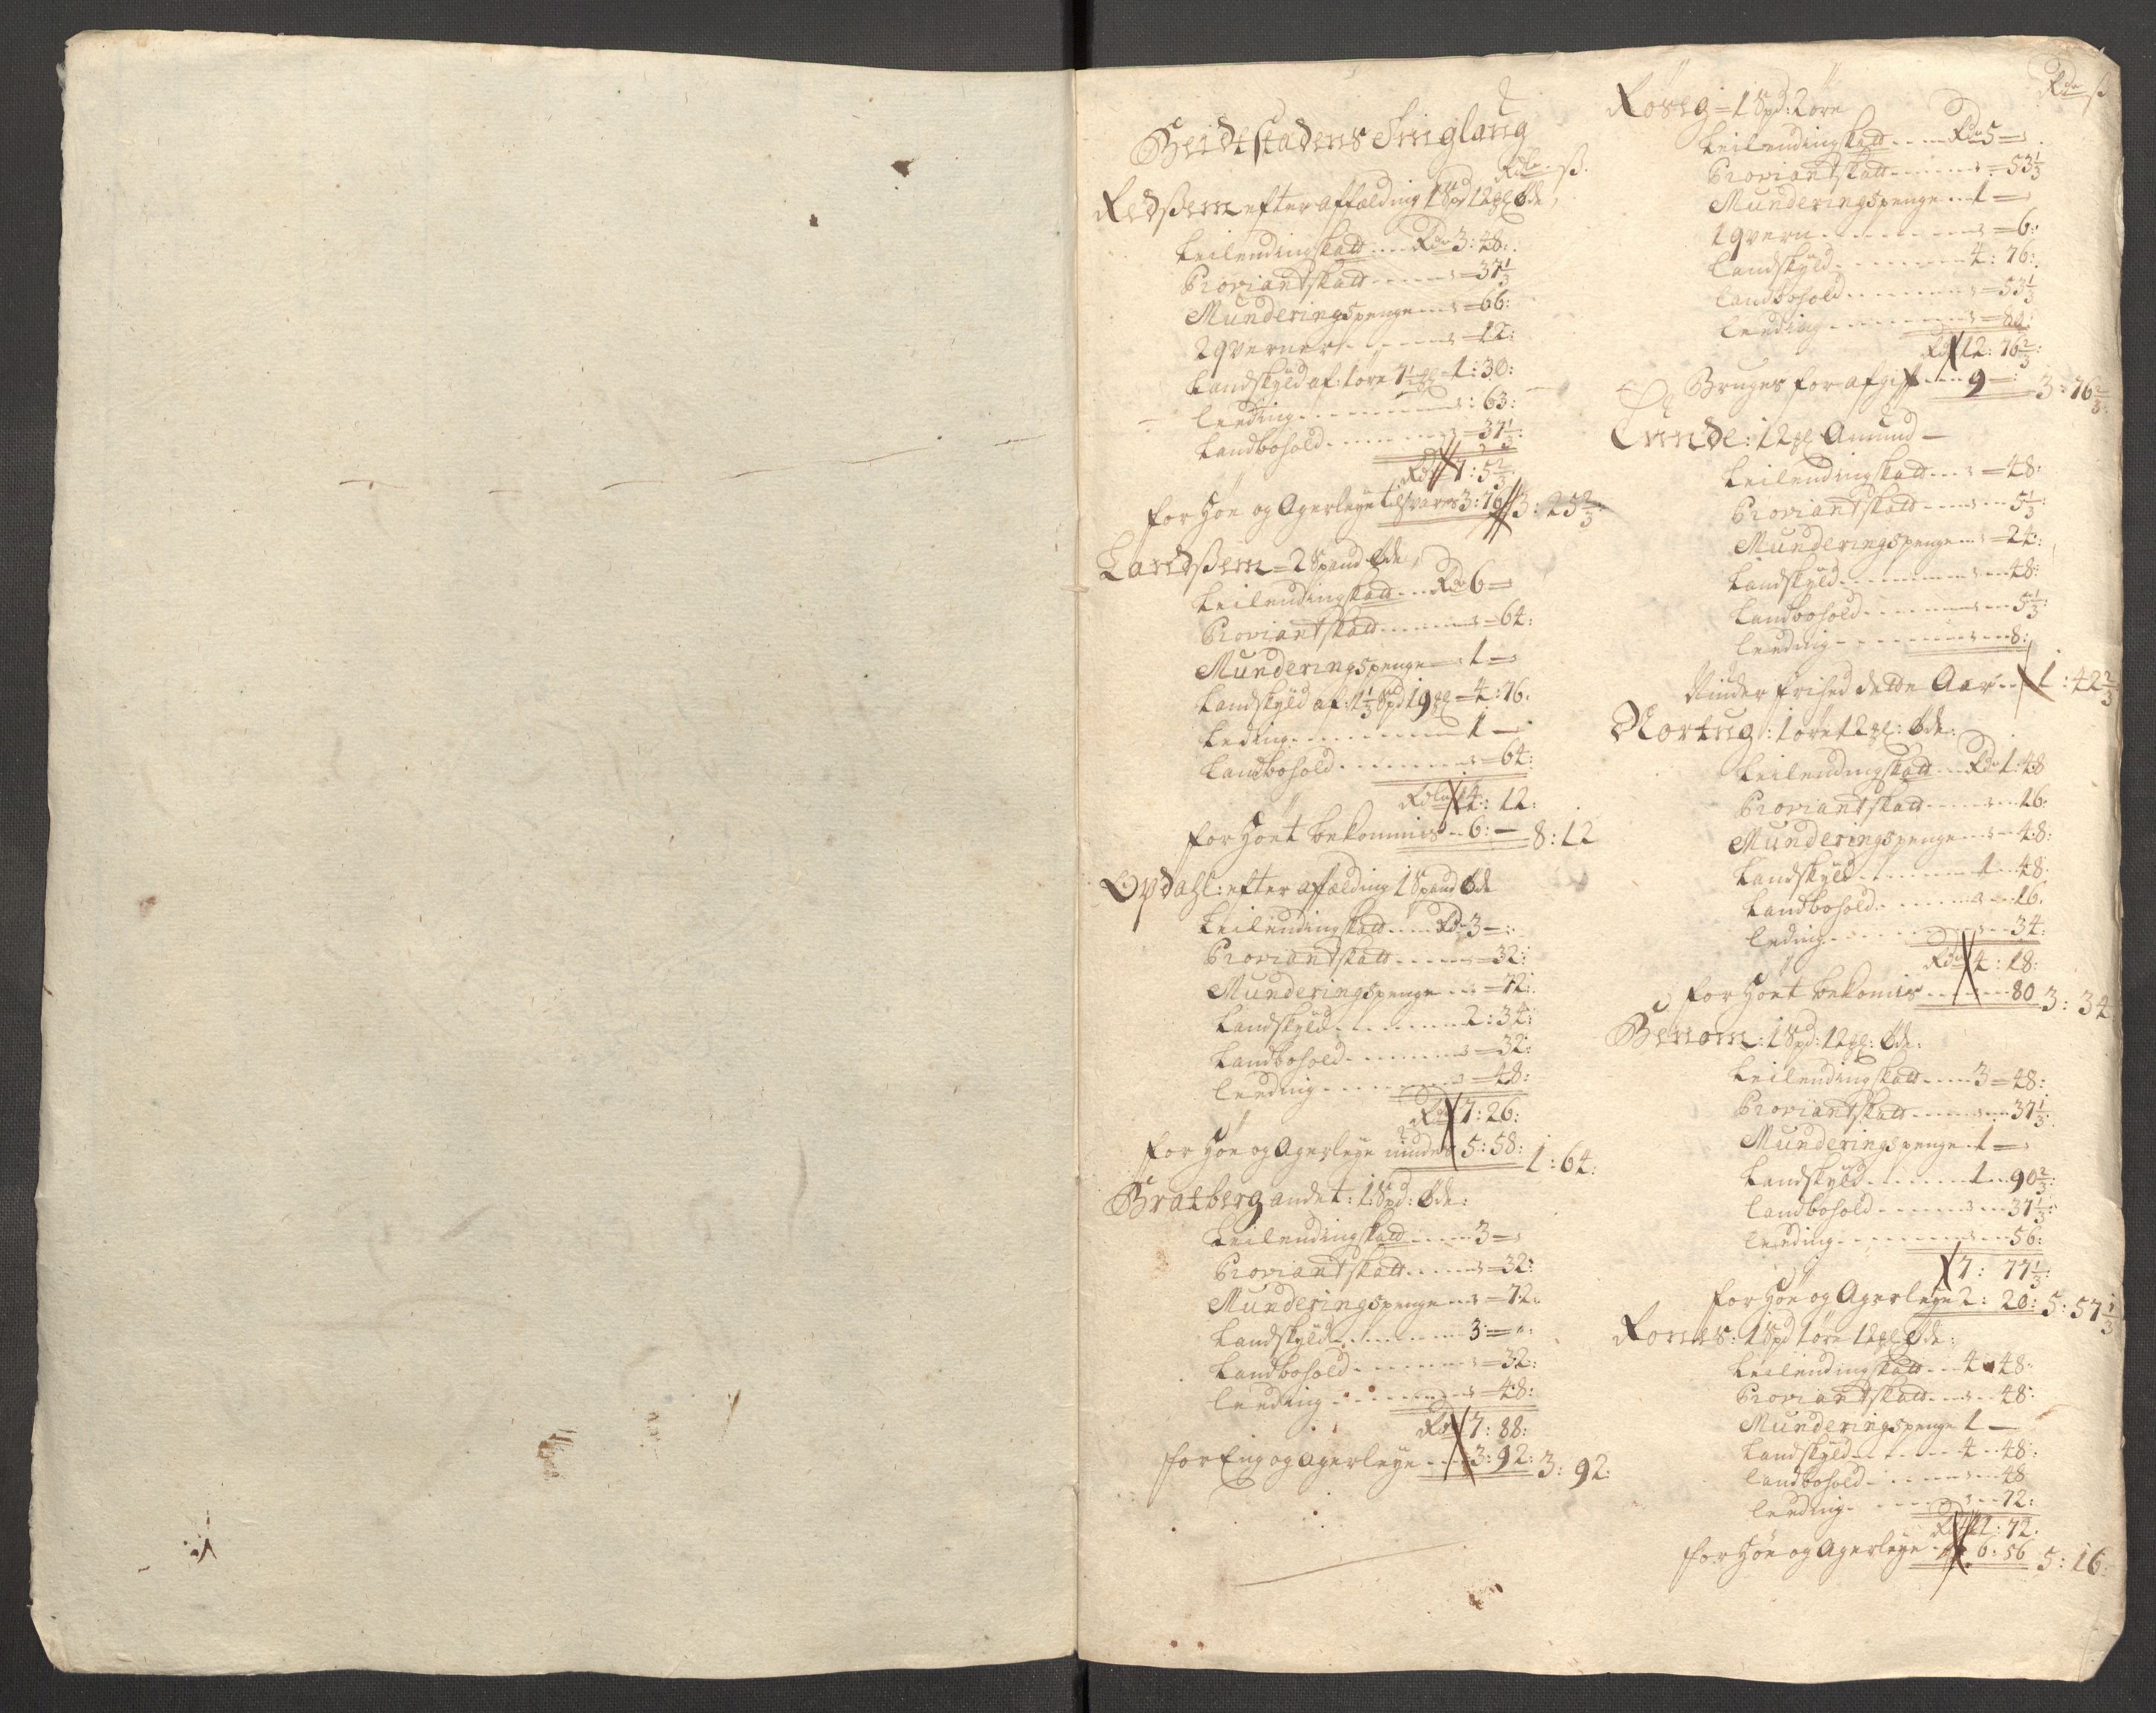 Beidtstadens Tinglaug
Rdlr ß.
Redßem efter affælding 1 Spd 12 mgl øde,
Leilendingskatt ... Rdr 3: 48:
Proviantskatt ... 37 1/3
Munderingspenge ... 66:
2 qverner ... 12:
Landskyld af: 1 øre 7 1/2 mgl 1: 30:
leeding ... 63:
Landbohold ... 37 1/3:
Rdr 7: 5 2/3
for Høe og Agerleye tilsvares 3: 76 3: 25 2/3:
Landßem = 2 Spand øde,
Leilendingskatt ... Rdr 6 =
Proviantskatt ... 64:
Munderingspenge 1 =
Landskyld af: 1 1/3 Spd 19 mgl = 4: 76.
Leding ... 1 =
Landbohold ... 64:
Rdlr 14: 12:
for Høet bekommis .. 6: — 8: 12
Opdahl: efter affælding 1 Spand øde
Leilendingskatt ... Rdr 3 =:
Proviantskatt ... 32:
Munderingspenge ... 72:
Landskyld ... 2: 34:
Landbohold ... 32:
leeding ... 48:
Rdr 7: 26:
for Høe og Agerleye 5: 58: 1: 64:
Bratberg andet: 1 Spd: øde:
Leilendingskatt ... 3 =
Proviantskatt ... 32:
Munderingspenge ... 72.
Landskyld ... 3 =:
Landbohold ... 32:
leeding ... 48:
Rdr 7: 88:
for Eng og Agerleye ... 3: 92: 3: 92:
Rdr ß
Røseg = 1 Spd: 2 øre
Leilendingskatt ... Rdr 5 =
Proviantskatt ... 53 1/3
Munderingspenge .. 1 =
1 qvern ... 6:
Landskyld ... 4: 76:
Landbohold ... 53 1/3
leeding ...
Rdr 12: 76 2/3:
Bruges for afgift ... 9 — 3: 76 2/3:
Lunde: 12 mgl Amund —
Leilendingskatt ... 48:
Proviantskatt ... 5 1/3:
Munderingspenge ... 24:
Landskyld ... 48:
Landbohold ... 5 1/3:
leeding ... 8:
Niuder frihed dette Aar .. 1: 42 2/3
Nortug: 1 øre 12 mgl: øde:
Leilendingskatt .. Rdr 1: 48
Proviantskatt ... 16:
Munderingspenge ... 48:
Landskyld ... 1 .. 48.
Landbohold ... 16.
leding ... 34:
Rdr 4: 18:
for Høet bekomis ... 80 3: 34
Benom: 1 Spd: 12 mgl: øde:
Leilendingskatt ... 3 = 48:
Proviantskatt ... 37 1/3:
Munderingspenge . 1 =
Landskyld ... 1 .. 90 2/3:
Landbohold ... 37 1/3:
leeding ... 56:
7: 77 1/3:
for Høe og Agerleye 2: 20: 5: 57 1/3
Rones: 1 Spd 1 øre 12 mgl øde:
Leilendingskatt .. 4 48:
Proviantskatt ... 48:
Munderingspenge 1 —
Landskyld ... 4 .. 48:
Landbohold ... 48
leeding ... 72:
Rdr 11: 72.
for Høe og Agerleye . 6: 56 5: 16: